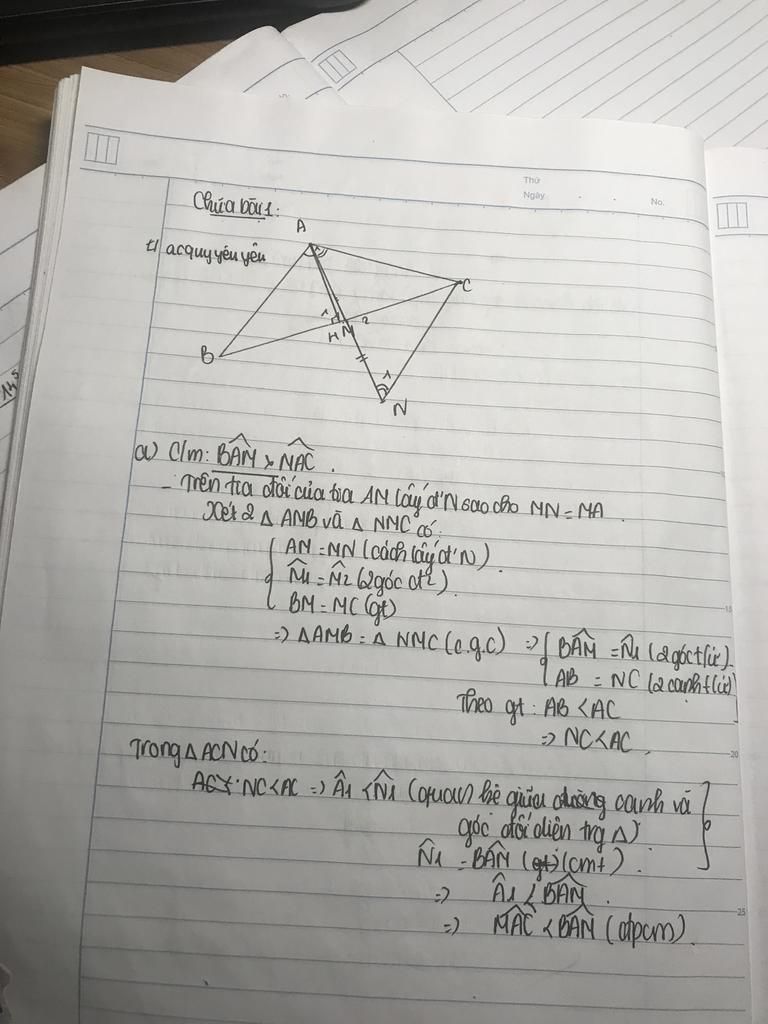 Thứ
Ngày
No.
Chữa bài 1:
A
C
B
H
M
1
2
1
N
a) C/m: BAM > MAC.
- Trên tia đối của tia AM lấy đ' N sao cho MN = MA
Xét 2 Δ AMB và Δ NMC có:
AM = MN (cách lấy đ' N)
M1 = M2 (2 góc đ²)
BM = MC (gt)
=> Δ AMB = Δ NMC (c.g.c) => BAM = N1 (2 góc t/ứ).
AB = NC (2 cạnh t/ứ)
Theo gt: AB < AC
=> NC < AC.
Trong Δ ACN có:
NC < AC => A1 < N1 (quan hệ giữa cạnh và
góc đối diện trg Δ)
N1 = BAM (cmt).
=> A1 < BAM.
=> MAC < BAM (đpcm).
15
20
25